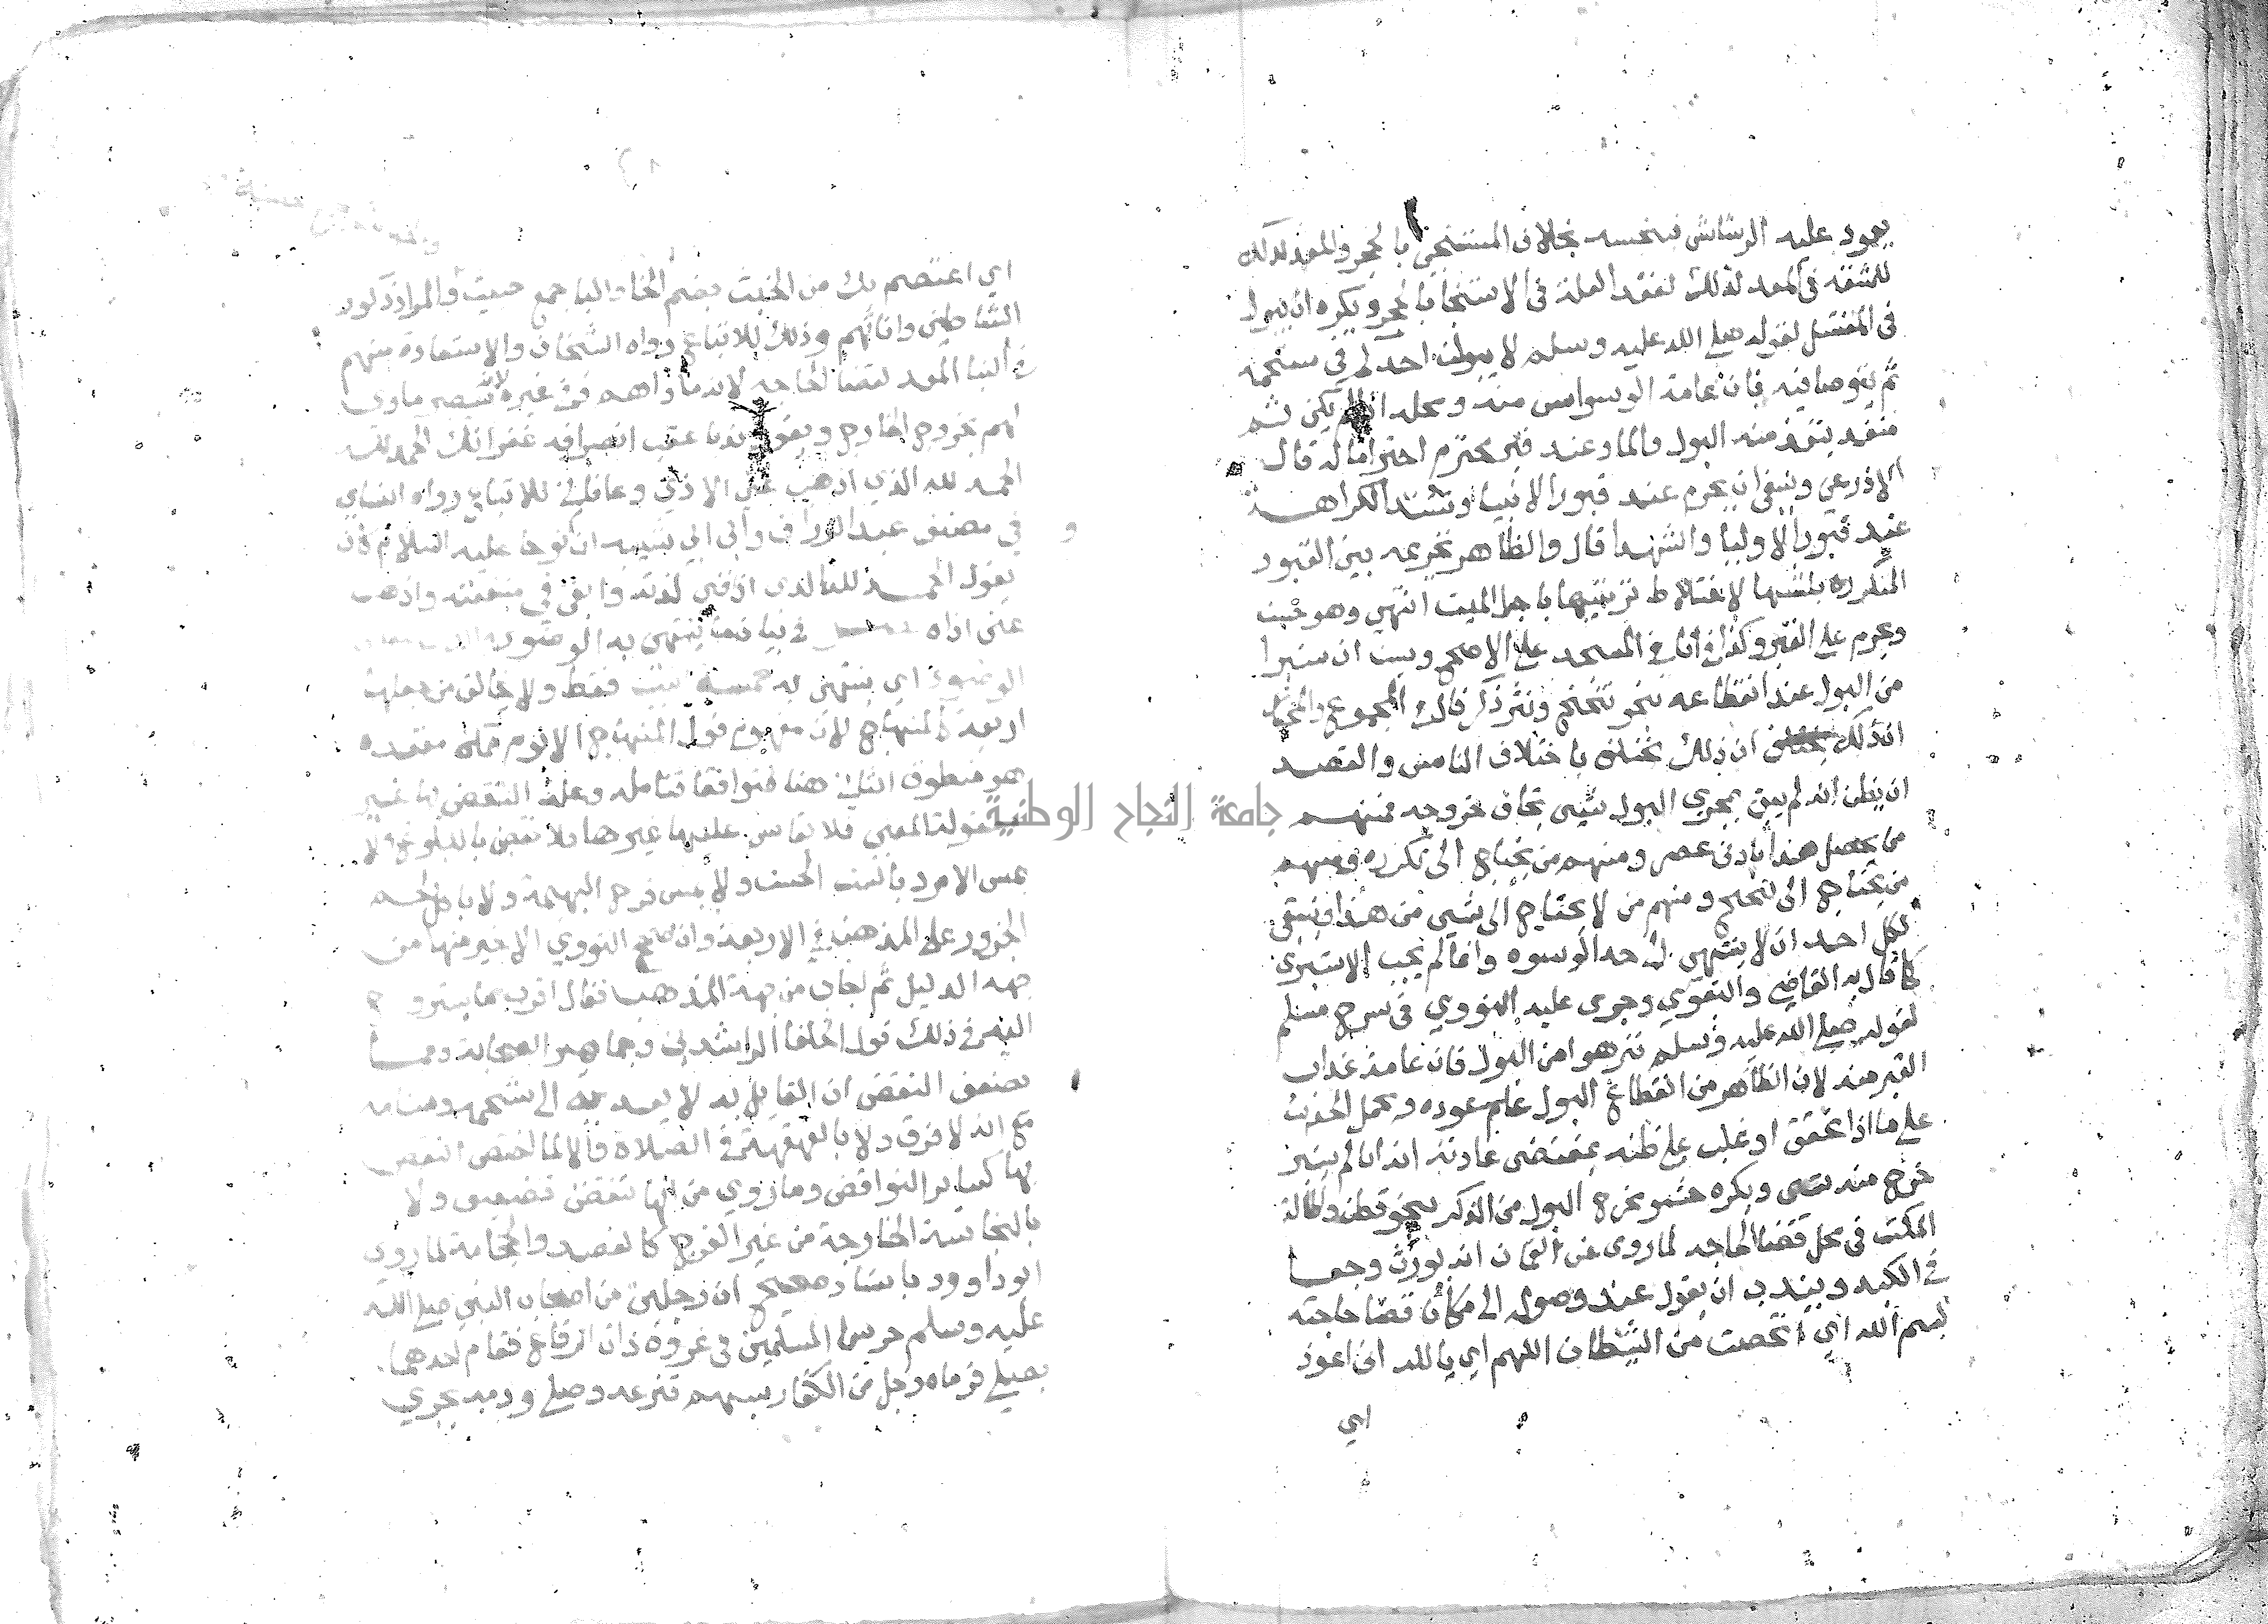 يعود عليه الرشاش فينجسه بخلاف المستنجي بالحجر والمعد لذلك
للمشقة في المعد لذلك لفقد العلة في الاستنجا بالحجر ويكره ان يبول
في المغتسل لقوله صلى الله عليه وسلم لا يبولن احدكم في مستحمه
ثم يتوضا فيه فان عامة الوسواس منه ومحله اذا لم يكن ثم
منفذ ينفذ منه البول والما وعند قبر محترم احتراما له قال
الاذرعي وينبغي ان يحرم عند قبور الانبيا وتشتد الكراهة
عند قبور الاوليا والشهدا قال والظاهر تحريمه بين القبور
المتكررة بنشها لاختلاط تربتها باجزا الميت انتهى وهو حسن
ويحرم على القبر وكذا في انا في المسجد على الاصح ويسن ان يستبرا
من البول عند انقطاعه بنحو تنحنح ونثر ذكر قال في المجموع والمختار
ان ذلك يختلف باختلاف الناس والقصد
ان يظن انه لم يبق بمجرى البول شيى يخاف خروجه فمنهم
من يحصل هذا بادنى عصر ومنهم من يحتاج الى تكرره ومنهم
من يحتاج الى تنحنح ومنهم من لا يحتاج الى شيى من هذا وينبغي
لكل احد ان لا ينتهي الى حد الوسوسه وانما لم يجب الاستبرى
كما قال به القاضي والبغوي وجرى عليه النووي في شرح مسلم
لقوله صلى الله عليه وسلم تنزهوا من البول فان عامة عذاب
القبر منه لان الظاهر من انقطاع البول عدم عوده ويحمل الحديث
على ما اذا تحقق او غلب على ظنه بمقتضى عادته انه ان لم يستبر
خرج منه شيى ويكره حشو مخرج البول من الذكر بنحو قطن واطالة
المكث في محل قضا الحاجه لما روى عن لقمان انه يورث وجعا
في الكبد ويندب ان يقول عند وصوله الى مكان قضا حاجته
بسم الله اي اتحصن من الشيطان اللهم اي يا الله اني اعوذ
اي
اي اعتصم بك من الخبث بضم الخا والبا جمع خبيث والمراد ذكور
الشياطين واناثهم وذلك للاتباع رواه الشيخان والاستعاذة منهم
في البنا المعد لقضا الحاجه لانه ماواهم وفي غيره لانه يصير ماوى
لهم بخروج الخارج ويقول ندبا عقب انصرافه غفرانك الحمد لله
الحمد لله الذي اذهب عني الاذى وعافاني للاتباع رواه النساي
وفي مصنف عبد الرزاق وابن ابي شيبه ان نوحا عليه السلام كان
يقول الحمد لله الذي اذاقني لذته وابقى في منفعته واذهب
عني اذاه في بيان ما ينتهي به الوضوء
الوضوء اي ينتهي به خمسة فقط ولا يخالف من جعلها
اربعة كالمنهاج لان مفهوم قول المنهاج الا نوم ممكن مقعده
هو منطوق الثاني هنا فتوافقا فتامله وعلة النقض بها غير
معقولة المعنى فلا يقاس عليها غيرها فلا نقض بالبلوغ ولا
بمس الامرد بالسن الحسن ولا بمس فرج البهيمة ولا باكل لحم
الجزور على المذهب في الاربعة وان صحح النووي الاخير منها من
جهة الدليل ثم اجاب من جهة المذهب فقال اقرب ما يستروح
اليه في ذلك قول الخلفا الراشدين وجماهير الصحابة ومما
يضعف النقض ان القايل به لا يعديه الى شحمه وسنامه
مع انه لا فرق ولا بالقهقهة في الصلاة والا لما اختص النقض
بها كساير النواقض وما روي من انها تنقض فضعيف ولا
بالنجاسة الخارجة من غير الفرج كالفصد والحجامة لما روى
ابو داوود باسناد صحيح ان رجلين من اصحاب النبي صلى الله
عليه وسلم حرسا المسلمين في غزوة ذات الرقاع فقام احدهما
يصلي فرماه رجل من الكفار بسهم فنزعه وصلى ودمه يجري
جامعة النجاح الوطنية